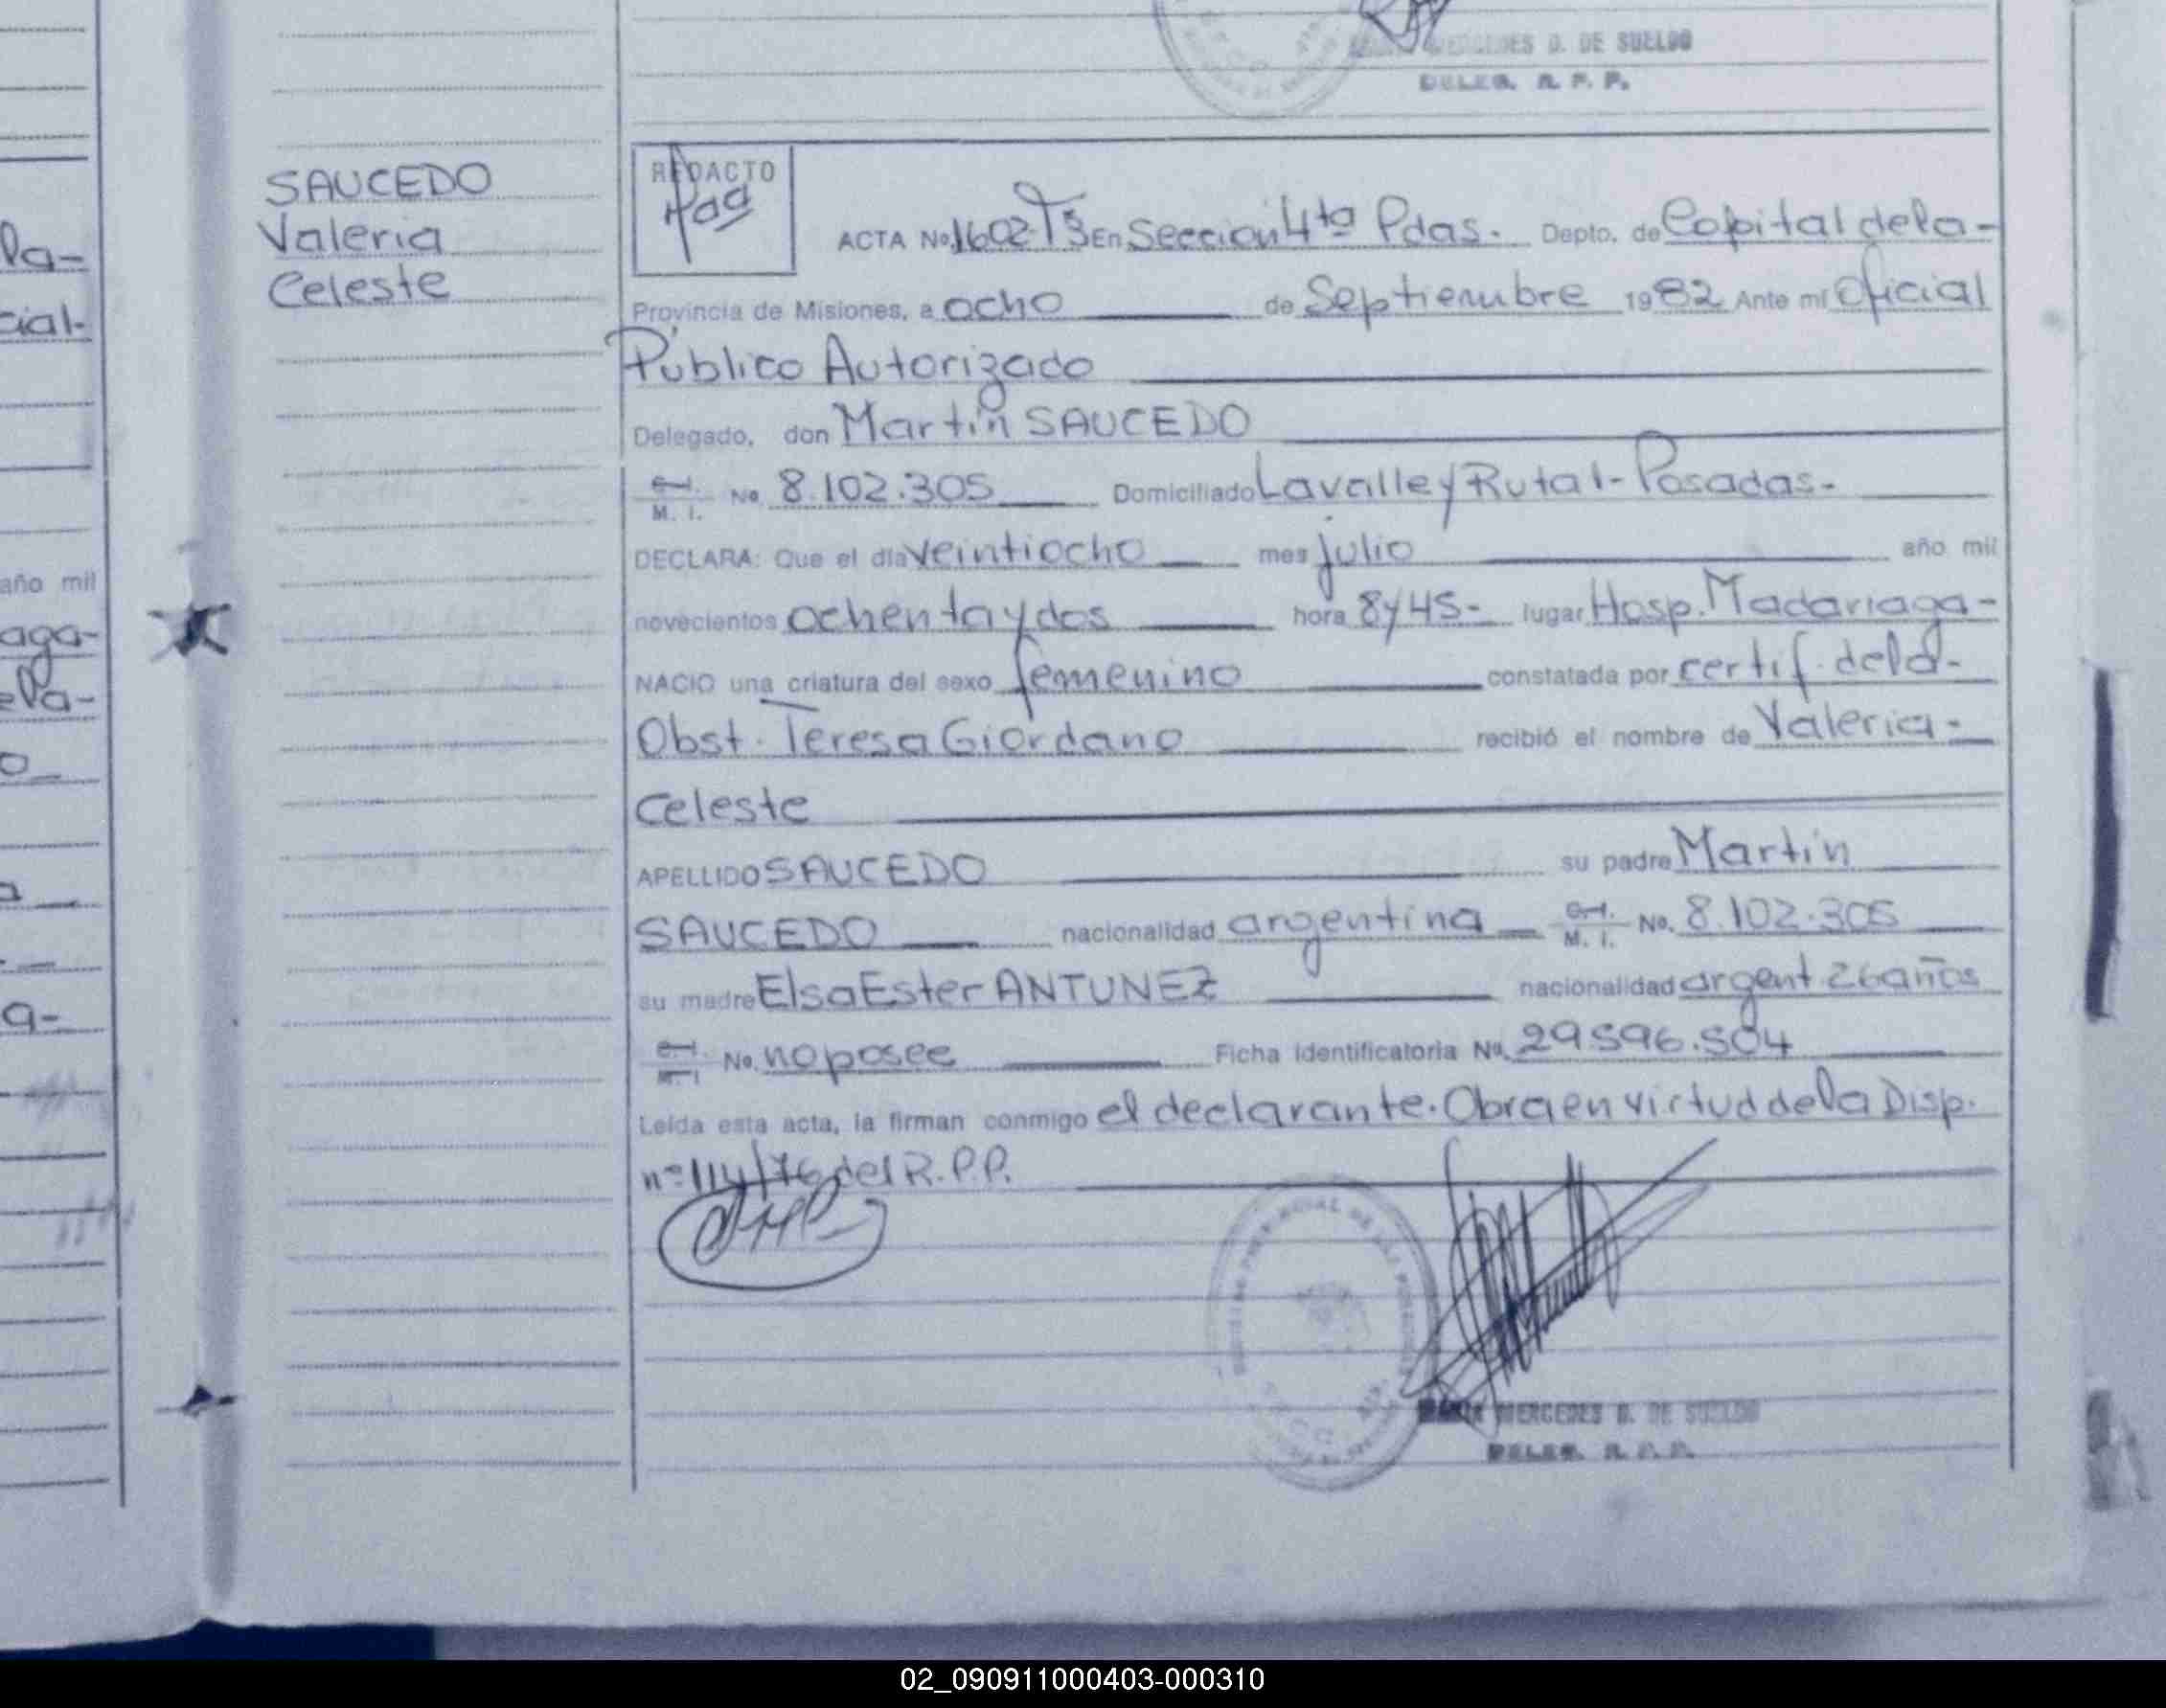 MERCEDES D. DE SUELDO
DELEG. R. P. P.
SAUCEDO
Valeria
Celeste
REDACTO
ACTA No 1602 T5 En Seccion 4ta Pdas. Depto. de Capital de la-
Provincia de Misiones, a ocho de Septiembre 1982 Ante mí Oficial
Público Autorizado
Delegado, don Martín SAUCEDO
M. I. No 8.102.305 Domiciliado Lavalle y Ruta 1 - Posadas.
DECLARA: Que el día veintiocho mes julio año mil
novecientos ochenta y dos hora 8 y 45- lugar Hosp. Madariaga-
NACIO una criatura del sexo femenino constatada por certif. de la-
Obst. Teresa Giordano recibió el nombre de Valeria-
Celeste
APELLIDO SAUCEDO su padre Martín
SAUCEDO nacionalidad argentina M. I. No. 8.102.305
su madre Elsa Ester ANTUNEZ nacionalidad argent 26 años
M. I No. no posee Ficha identificatoria No. 29596.504
Leída esta acta, la firman conmigo el declarante. Obra en virtud de la Disp.
nº 114/76 del R.P.P.
MERCEDES D. DE SUELDO
DELEG. R. P. P.
la-
cial-
año mil
aga-
ela-
o
a
a-
02_090911000403-000310